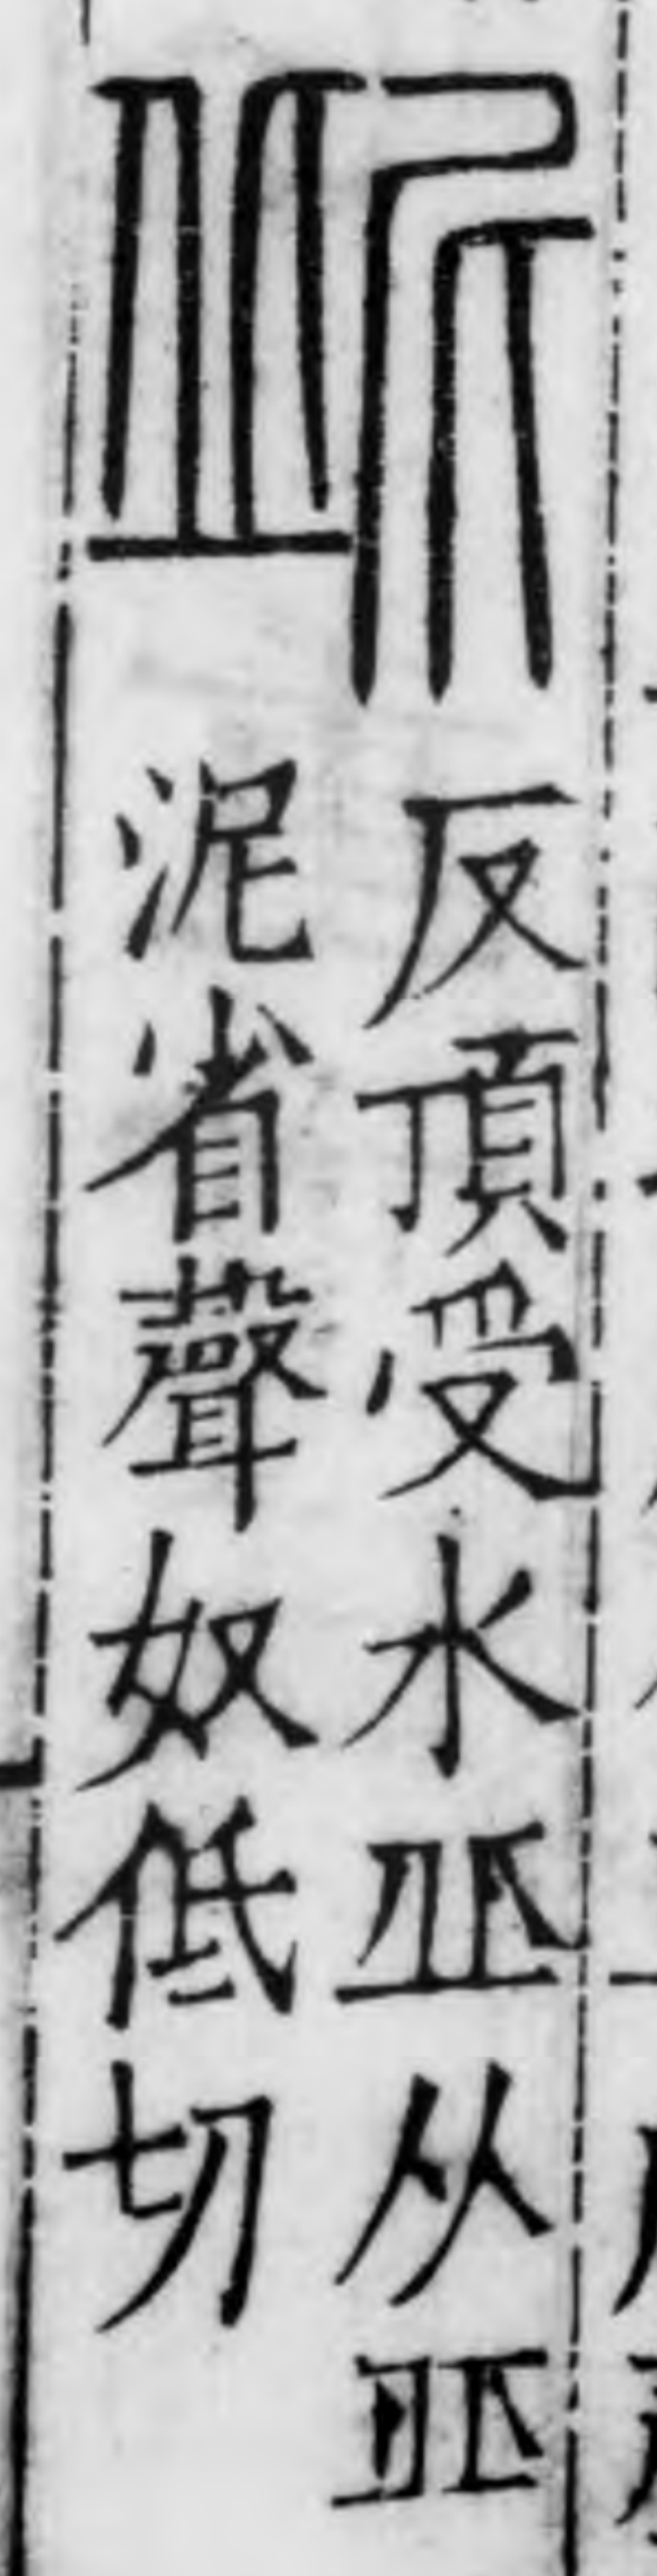 屔
反頂受水丠从丠
泥省聲奴低切